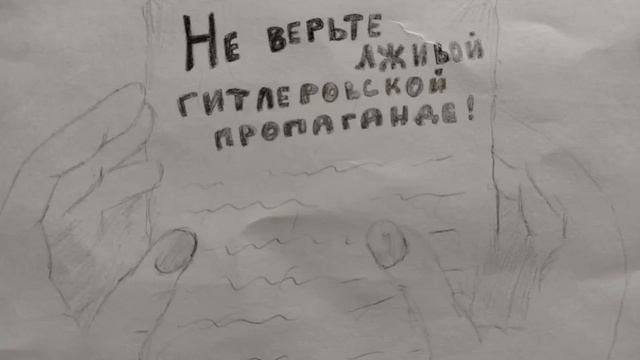 Не верьте
лживой
гитлеровской
пропаганде!